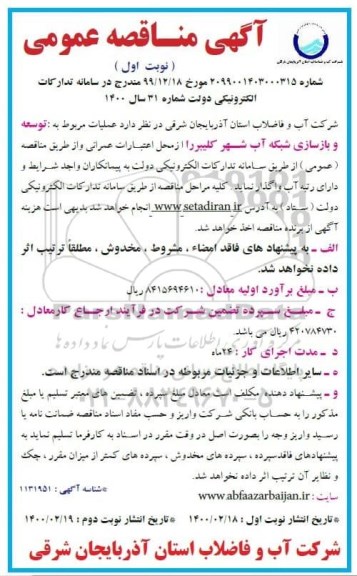 آگهی مناقصه عمومی
( نوبت اول )
شماره ۲۰۹۹۰۰۱۴۰۳۰۰۰۳۱۵ مورخ ۹۹/۱۲/۱۸ مندرج در سامانه تدارکات
الکترونیکی دولت شماره ۳۱ سال ۱۴۰۰
شرکت آب و فاضلاب استان آذربایجان شرقی در نظر دارد عملیات مربوط به : توسعه
و بازسازی شبکه آب شهر کلیبر را از محل اعتبارات عمرانی و از طریق مناقصه
( عمومی ) از طریق سامانه تدارکات الکترونیکی دولت به پیمانکاران واجد شرایط و
دارای رتبه آب واگذار نماید. کلیه مراحل مناقصه از طریق سامانه تدارکات الکترونیکی
دولت ( ستاد ) به آدرس www.setadiran.ir انجام خواهد شد بدیهی است هزینه
آگهی از برنده مناقصه اخذ خواهد شد.
الف - به پیشنهاد های فاقد امضاء ، مشروط ، مخدوش ، مطلقا ترتیب اثر
داده نخواهد شد.
ب - مبلغ برآورد اولیه معادل : ۸۴۱۵۶۹۴۶۱۰ ریال
ج - مبلغ سپرده تضمین شرکت در فرآیند ارجاع کار معادل :
۴۲۰۷۸۴۷۳۰ ریال می باشد.
د - مدت اجرای کار : ۲۴ ماه
ه - سایر اطلاعات و جزئیات مربوطه در اسناد مناقصه مندرج است.
و - پیشنهاد دهنده مکلف است معادل مبلغ سپرده ، تضمین های معتبر تسلیم یا مبلغ
مذکور را به حساب بانکی شرکت واریز و حسب مفاد اسناد مناقصه ضمانت نامه یا
رسید واریز وجه را بصورت اصل در وقت مقرر در اسناد به کارفرما تسلیم نماید به
پیشنهادهای فاقد سپرده ، سپرده های مخدوش ، سپرده های کمتر از میزان مقرر ، چک
و نظایر آن ترتیب اثر داده نخواهد شد.
*شناسه آگهی : ۱۱۳۱۹۵۱
سایت : www.abfaazarbaijan.ir
*تاریخ انتشار نوبت اول : ۱۴۰۰/۰۲/۱۸ *تاریخ انتشار نوبت دوم : ۱۴۰۰/۰۲/۱۹
شرکت آب و فاضلاب استان آذربایجان شرقی